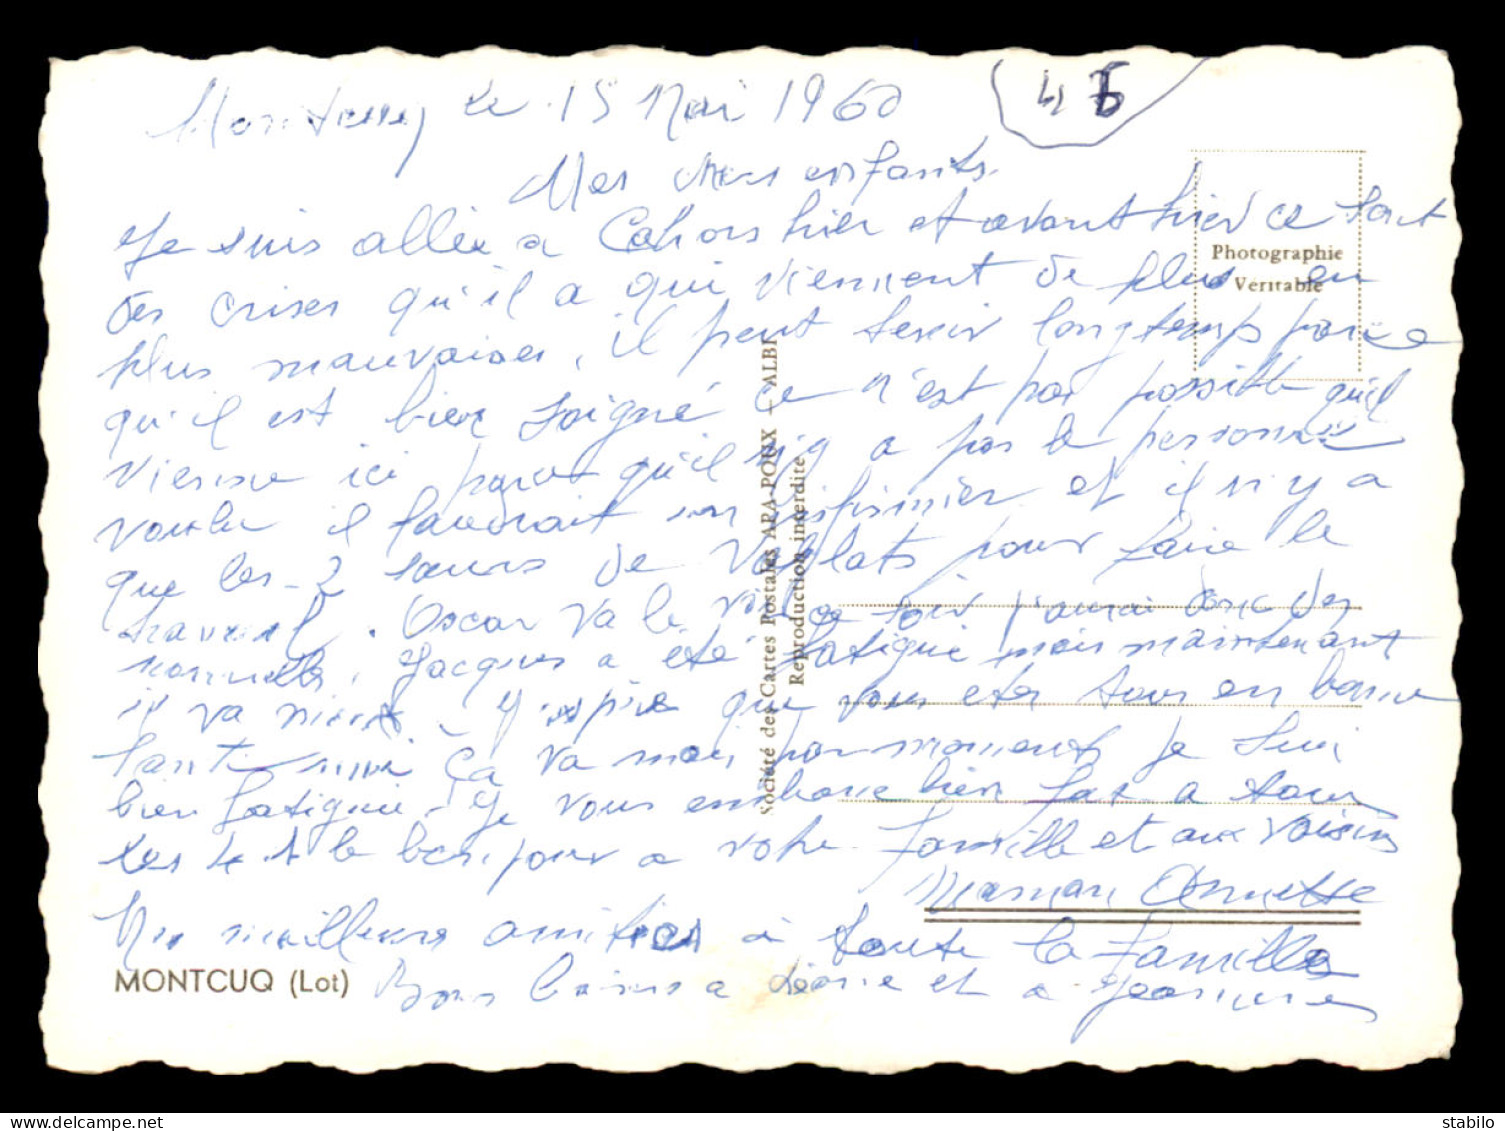 Montcuq le 15 Mai 1960
46
Mes chers enfants.
Je suis allée a Cahors hier et avant hier ce sont
des crises qu'il a qui viennent de plus en
plus mauvaises, il peut tenir longtemps parce
qu'il est bien soigné ce n'est pas possible qu'il
vienne ici parce qu'il n'y a pas le personnel
voulu il faudrait un infirmier et il n'y a
que les 2 sœurs de pour faire le
travail. Oscar va le voir ce soir j'aurai donc des
nouvelles. Jacques a été fatigué mais maintenant
il va mieux. J'espère que vous etes tous en bonne
santé moi ça va mais par moments je suis
bien fatiguée. Je vous embrasse bien fort a tous
les 4 et le bonjour a votre famille et aux voisins
Maman Annette
Mes meilleures amitiés à toute la famille
Bons baisers a Léonie et a
MONTCUQ (Lot)
Photographie
Véritable
Société des Cartes Postales APA-POUX — ALBI
Reproduction interdite
stabilo